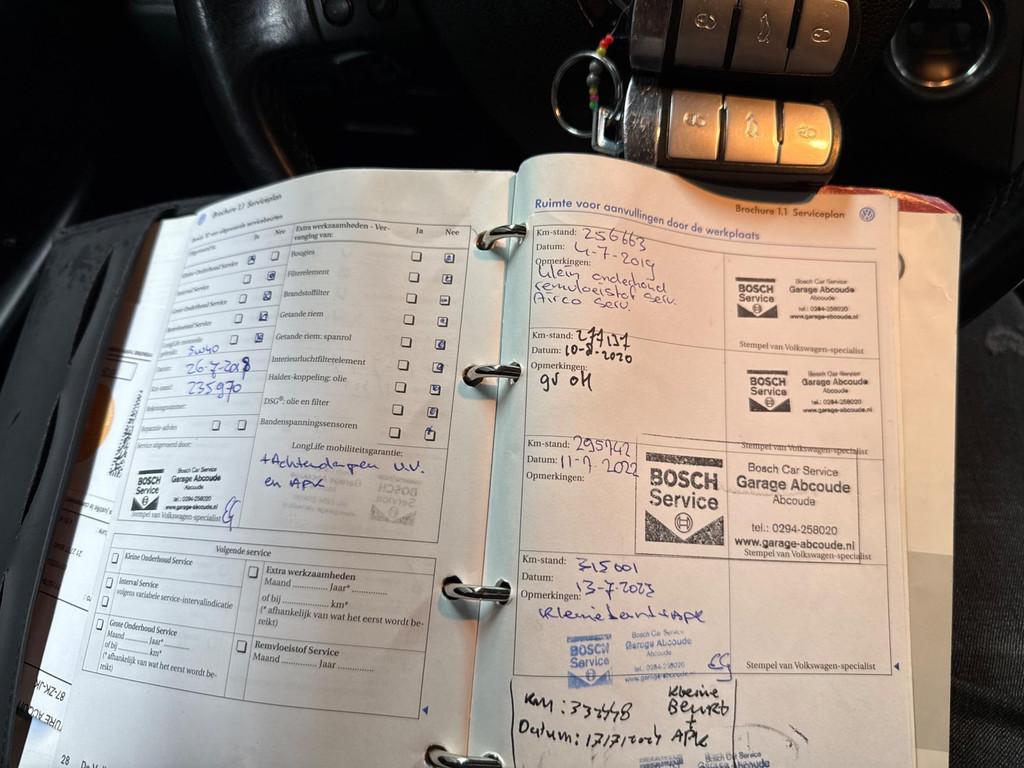 Brochure 1.1 Serviceplan
Ja Nee
Kleine Onderhoud Service
Interval Service
Grote Onderhoud Service
Remvloeistof Service
5W40
Datum: 26-7-2018
Km-stand: 235970
Reparatie-advies
Service uitgevoerd door:
BOSCH
Service
Bosch Car Service
Garage Abcoude
Abcoude
tel.: 0294-258020
www.garage-abcoude.nl
Stempel van Volkswagen-specialist
Extra werkzaamheden - Ver-
vanging van:
Ja Nee
Bougies
Filterelement
Brandstoffilter
Getande riem
Getande riem: spanrol
Interieurluchtfilterelement
Haldex-koppeling: olie
DSG®: olie en filter
Bandenspanningssensoren
LongLife mobiliteitsgarantie:
+Achterdempen V.V.
en APK
Volgende service
Kleine Onderhoud Service
Interval Service
volgens variabele service-intervalindicatie
Grote Onderhoud Service
Maand ........... Jaar* ...........
of bij ........... km*
(*afhankelijk van wat het eerst wordt be-
reikt)
Extra werkzaamheden
Maand ........... Jaar* ...........
of bij ........... km*
(* afhankelijk van wat het eerst wordt be-
reikt)
Remvloeistof Service
Maand ........... Jaar ...........
28
87-ZK-J
Ruimte voor aanvullingen door de werkplaats
Brochure 1.1 Serviceplan
Km-stand: 256663
Datum: 4-7-2019
Opmerkingen:
klein onderhoud
remvloeistof serv.
Airco serv.
BOSCH
Service
Bosch Car Service
Garage Abcoude
Abcoude
tel.: 0294-258020
www.garage-abcoude.nl
Stempel van Volkswagen-specialist
Km-stand: 277137
Datum: 10-8-2020
Opmerkingen:
gr OH
BOSCH
Service
Bosch Car Service
Garage Abcoude
Abcoude
tel.: 0294-258020
www.garage-abcoude.nl
Stempel van Volkswagen-specialist
Km-stand: 295742
Datum: 11-7-2022
Opmerkingen:
BOSCH
Service
Bosch Car Service
Garage Abcoude
Abcoude
tel.: 0294-258020
www.garage-abcoude.nl
Stempel van Volkswagen-specialist
Km-stand: 315001
Datum: 13-7-2023
Opmerkingen:
BOSCH
Service
Bosch Car Service
Garage Abcoude
Abcoude
tel.: 0294-258020
www.garage-abcoude.nl
Stempel van Volkswagen-specialist
Km: 332448
Datum: 17/7/2024
Kleine
Beurt
+
APK
Bosch Car Service